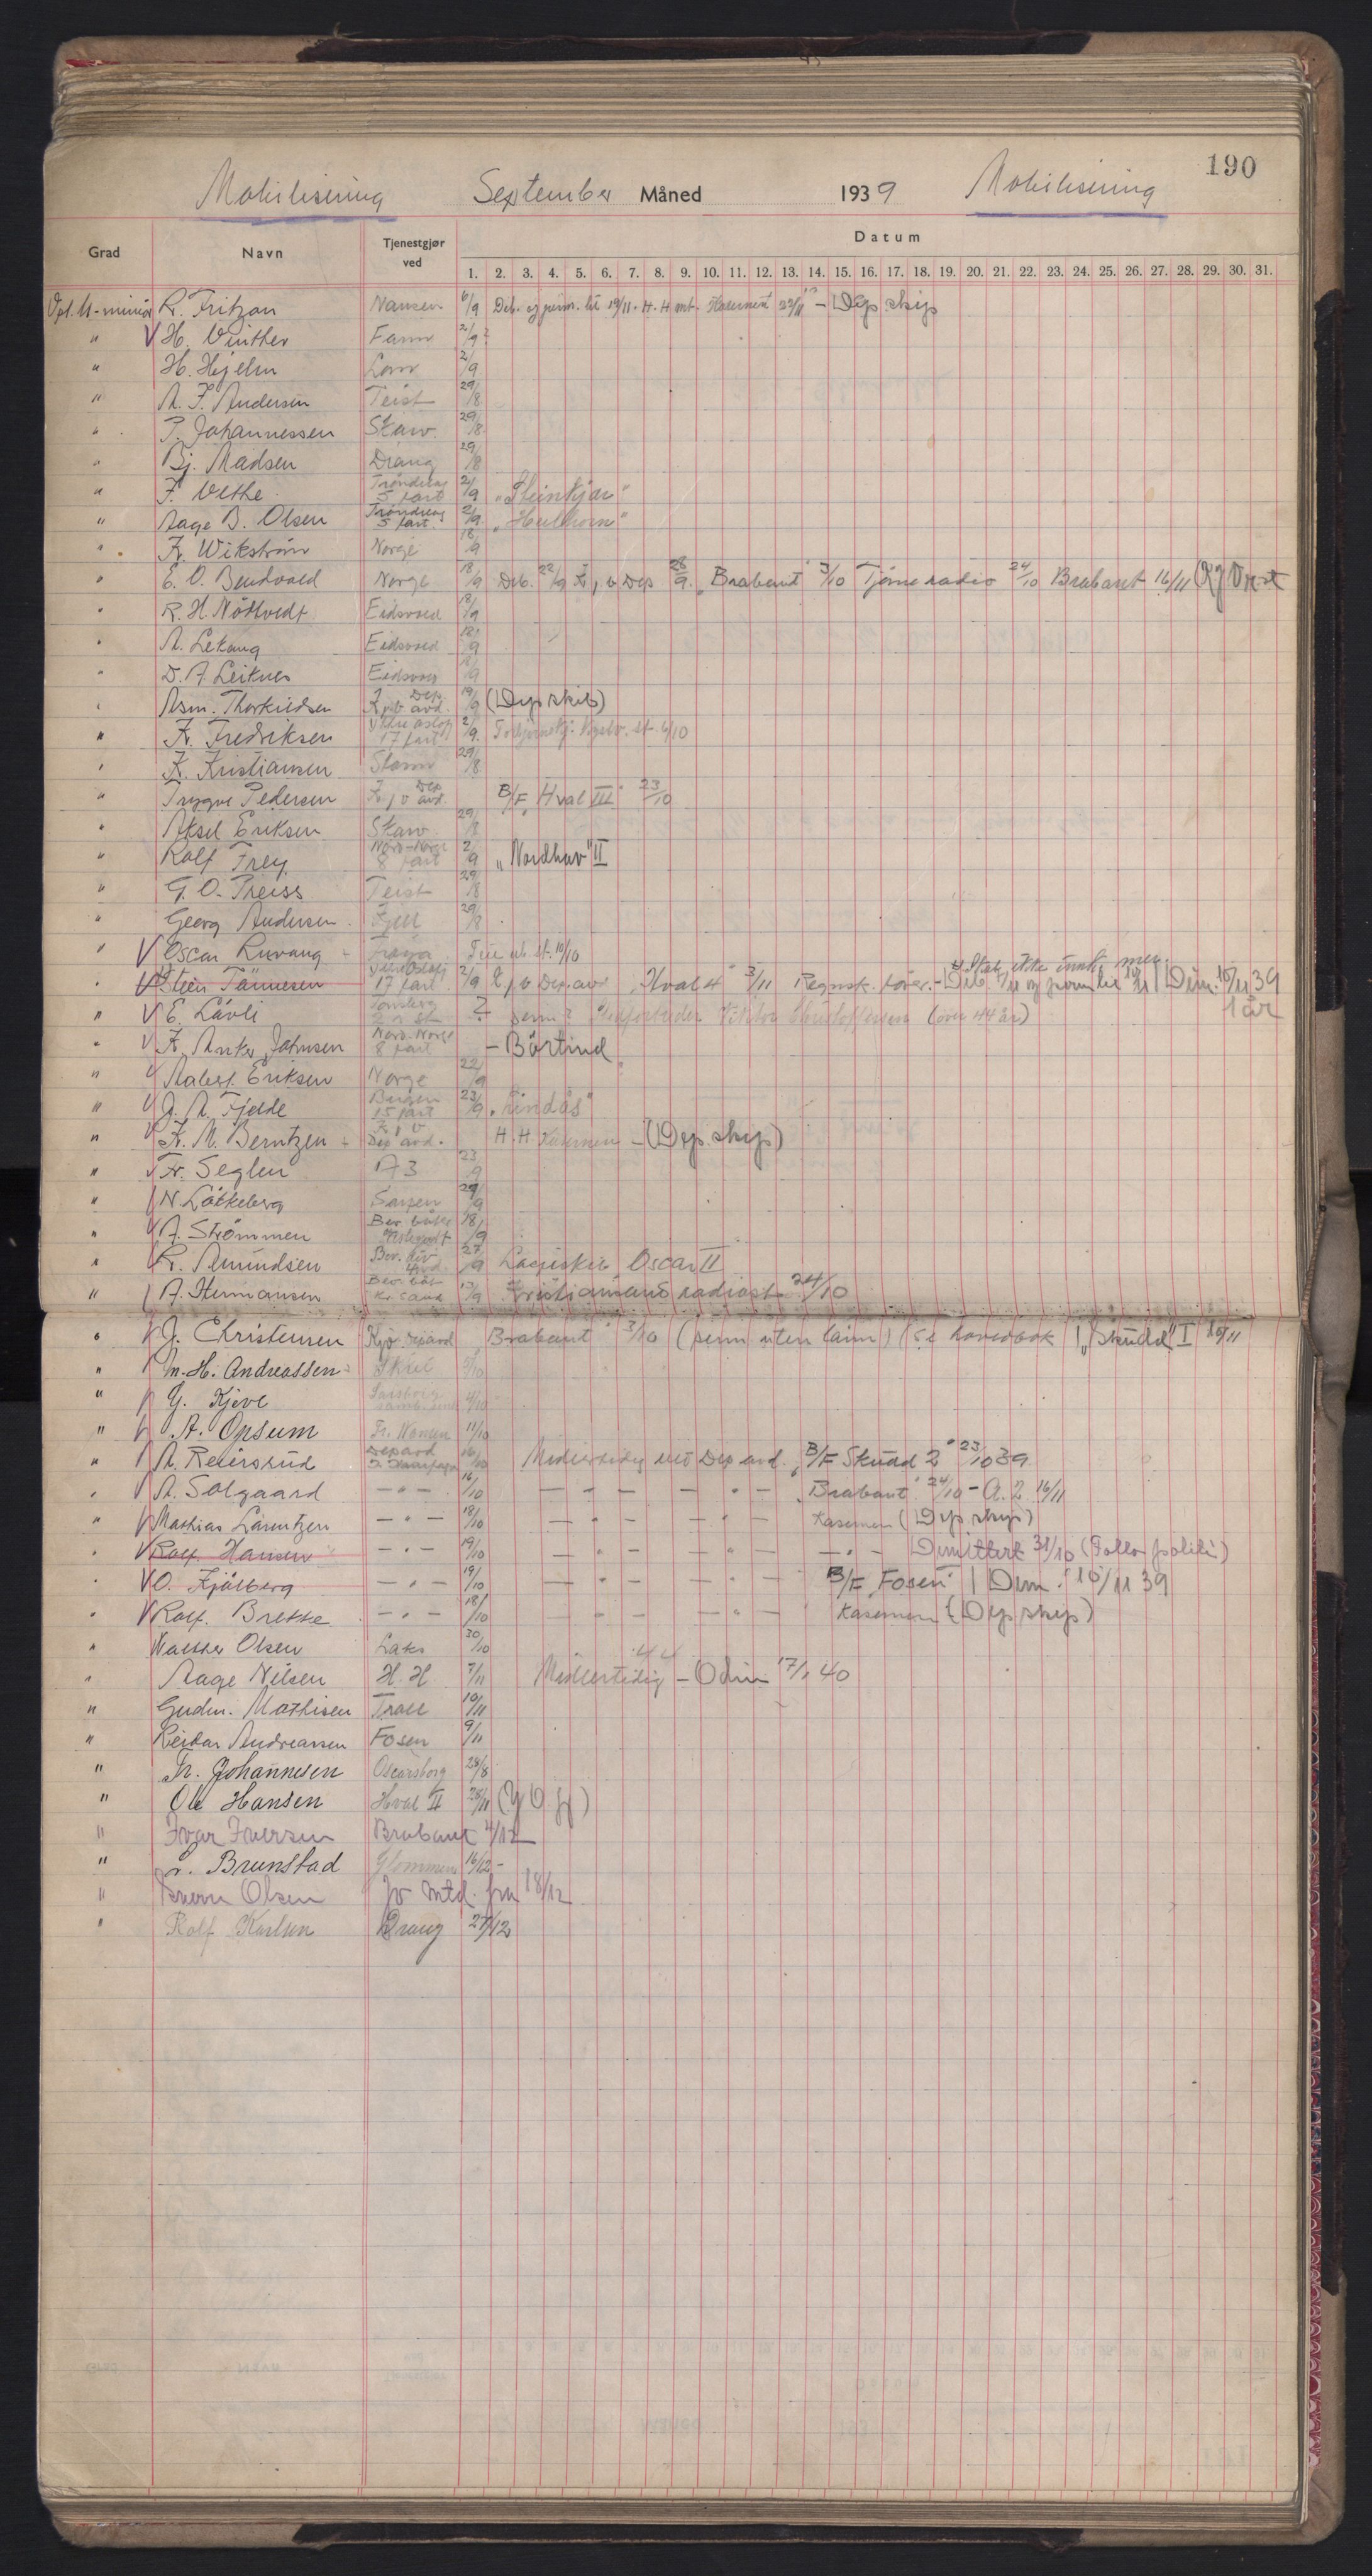 190
Mobilisering September Måned 1939 Mobilisering
Grad Navn Tjenestgjør ved Datum
1. 2. 3. 4. 5. 6. 7. 8. 9. 10. 11. 12. 13. 14. 15. 16. 17. 18. 19. 20. 21. 22. 23. 24. 25. 26. 27. 28. 29. 30. 31.
R. Fritzon Nansen 6/9 Deb. og perm. til 19/11. H. H. mt. 22/11 - Dep. skip
" V H. Vinther Farm 2/9 ?
" H. Hjelm Lom 2/9
" A. F. Andersen Teist 29/8
" P. Johannessen Skarv 29/8
" Bj. Madsen Draug 29/8
" F. Vethe Trøndelag 5 fart 2/9 "Steinkjær"
" Aage B. Olsen Trøndelag 5 fart. 2/9 "Heilhorn"
" K. Wikstrøm Norge 18/9
" E. O. Bendvold Norge 18/9 Deb. 22/9 K j v Dep 28/9 "Brabant" 3/10 Tjöme radio 24/10 Brabant 16/11
" R. H. Nöttvedt Eidsvold 18/9
" A. Lekang Eidsvold 18/9
" D. A. Leiknes Eidsvold 18/9
" Asm. Thorkildsen K j v Dep. avd. 19/9 (Dep skib)
" K. Fredriksen Ytre Oslofj 17 fart 2/9 6/10
" K. Kristiansen Storm 29/8
" Trygve Pedersen K j v Dep avd. B/F "Hval III" 23/10
" Aksel Eriksen Skarv 29/8
" Rolf Frey Nord-Norge 8 fart 2/9 "Nordhav" II
" G. O. Preiss Teist 29/8
" Georg Andersen Kjell 29/8
" V Oscar Ruvang Frøya 10/10
V Stein Tännesen Ytre Oslofj 17 fart 2/9 K j v Dep. avd "Hval 4" 3/11 Regnsk. fører. - Dim. 15/11 39
1 år
" V E. Løvli Tønsberg ? perm? Viktor Christoffersen (over 44 år)
" V K. Anker Johnsen Nord-Norge 8 fart - Börtind
" V Aabert Eriksen Norge 22/9
" V J. A. Fjelde Bergen 15 fart 23/9 "Lindås"
" V K. M. Berntzen K j v Dep avd. H. H. Kasernen - (Dep. skip)
" V Fr. Seglen A 3 23/9
" V N. Lökkeberg Sarpen 29/9
" V A. Strömmen 18/9
" V R. Amundsen Bev. div 27/9 Losjiskib Oscar II
" V A. Hermansen Bev. båt Kr. sand 13/9 Kristiansand radiost 24/10
" V J. Christensen "Brabant" 3/10 (perm uten lønn) (se hovedbok) "Skudd" I 10/11
" V M. H. Andreassen /10
" V G. Kjeve Sarpsborg 4/10
" V A. Opsum Fr. Nansen 11/10
" V A. Reiersrud Depavd 16/10 Midlertidig ved Dep avd. "B/F Skudd 2" 23/10 39
" V A. Solgaard - " - 16/10 - " - - " - "Brabant" 24/10 - A. 2. 16/11
" V Mathias Lorentzen - " - 18/10 - " - - " - Kasernen (Dep skip)
" V Rolf Hansen - " - 19/10 - " - - " - - " - Dimittert 31/10 (Follo politi)
" V O. Kjölberg - " - 19/10 - " - - " - B/F "Fosen" | Dim. 15/11 39
" V Rolf Brekke - " - 18/10 - " - - " - Kasernen (Dep skip)
" Walther Olsen Laks 30/10
" Aage Nilsen H. H. 7/11 Midlertidig - Odin 17/1 40
" Gudm. Mathisen Troll 10/11
" Reidar Andreassen Fosen 9/11
" Fr. Johannesen Oscarsborg 28/8
" Ole Hansen Hval II 28/11 (Y O fj)
" Ivar Iversen Brabant 4/12
" L. Brunstad Glommen 16/12 -
" Olsen Jv mtd. fra 18/12
" Rolf Karlsen Draug 27/12